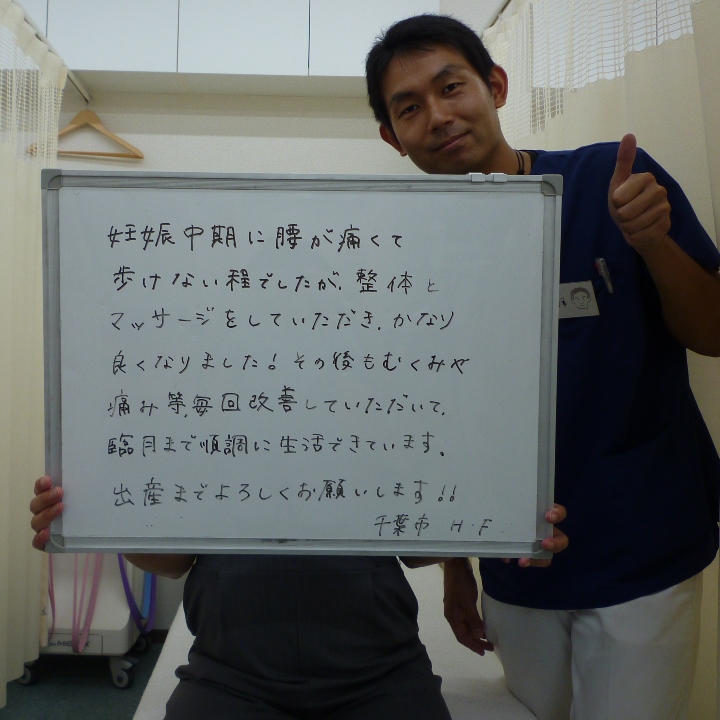 妊娠中期に腰が痛くて
歩けない程でしたが、整体と
マッサージをしていただき、かなり
良くなりました！その後もむくみや
痛み等、毎回改善していただいて、
臨月まで順調に生活できています。
出産までよろしくお願いします!!
千葉市 H・F